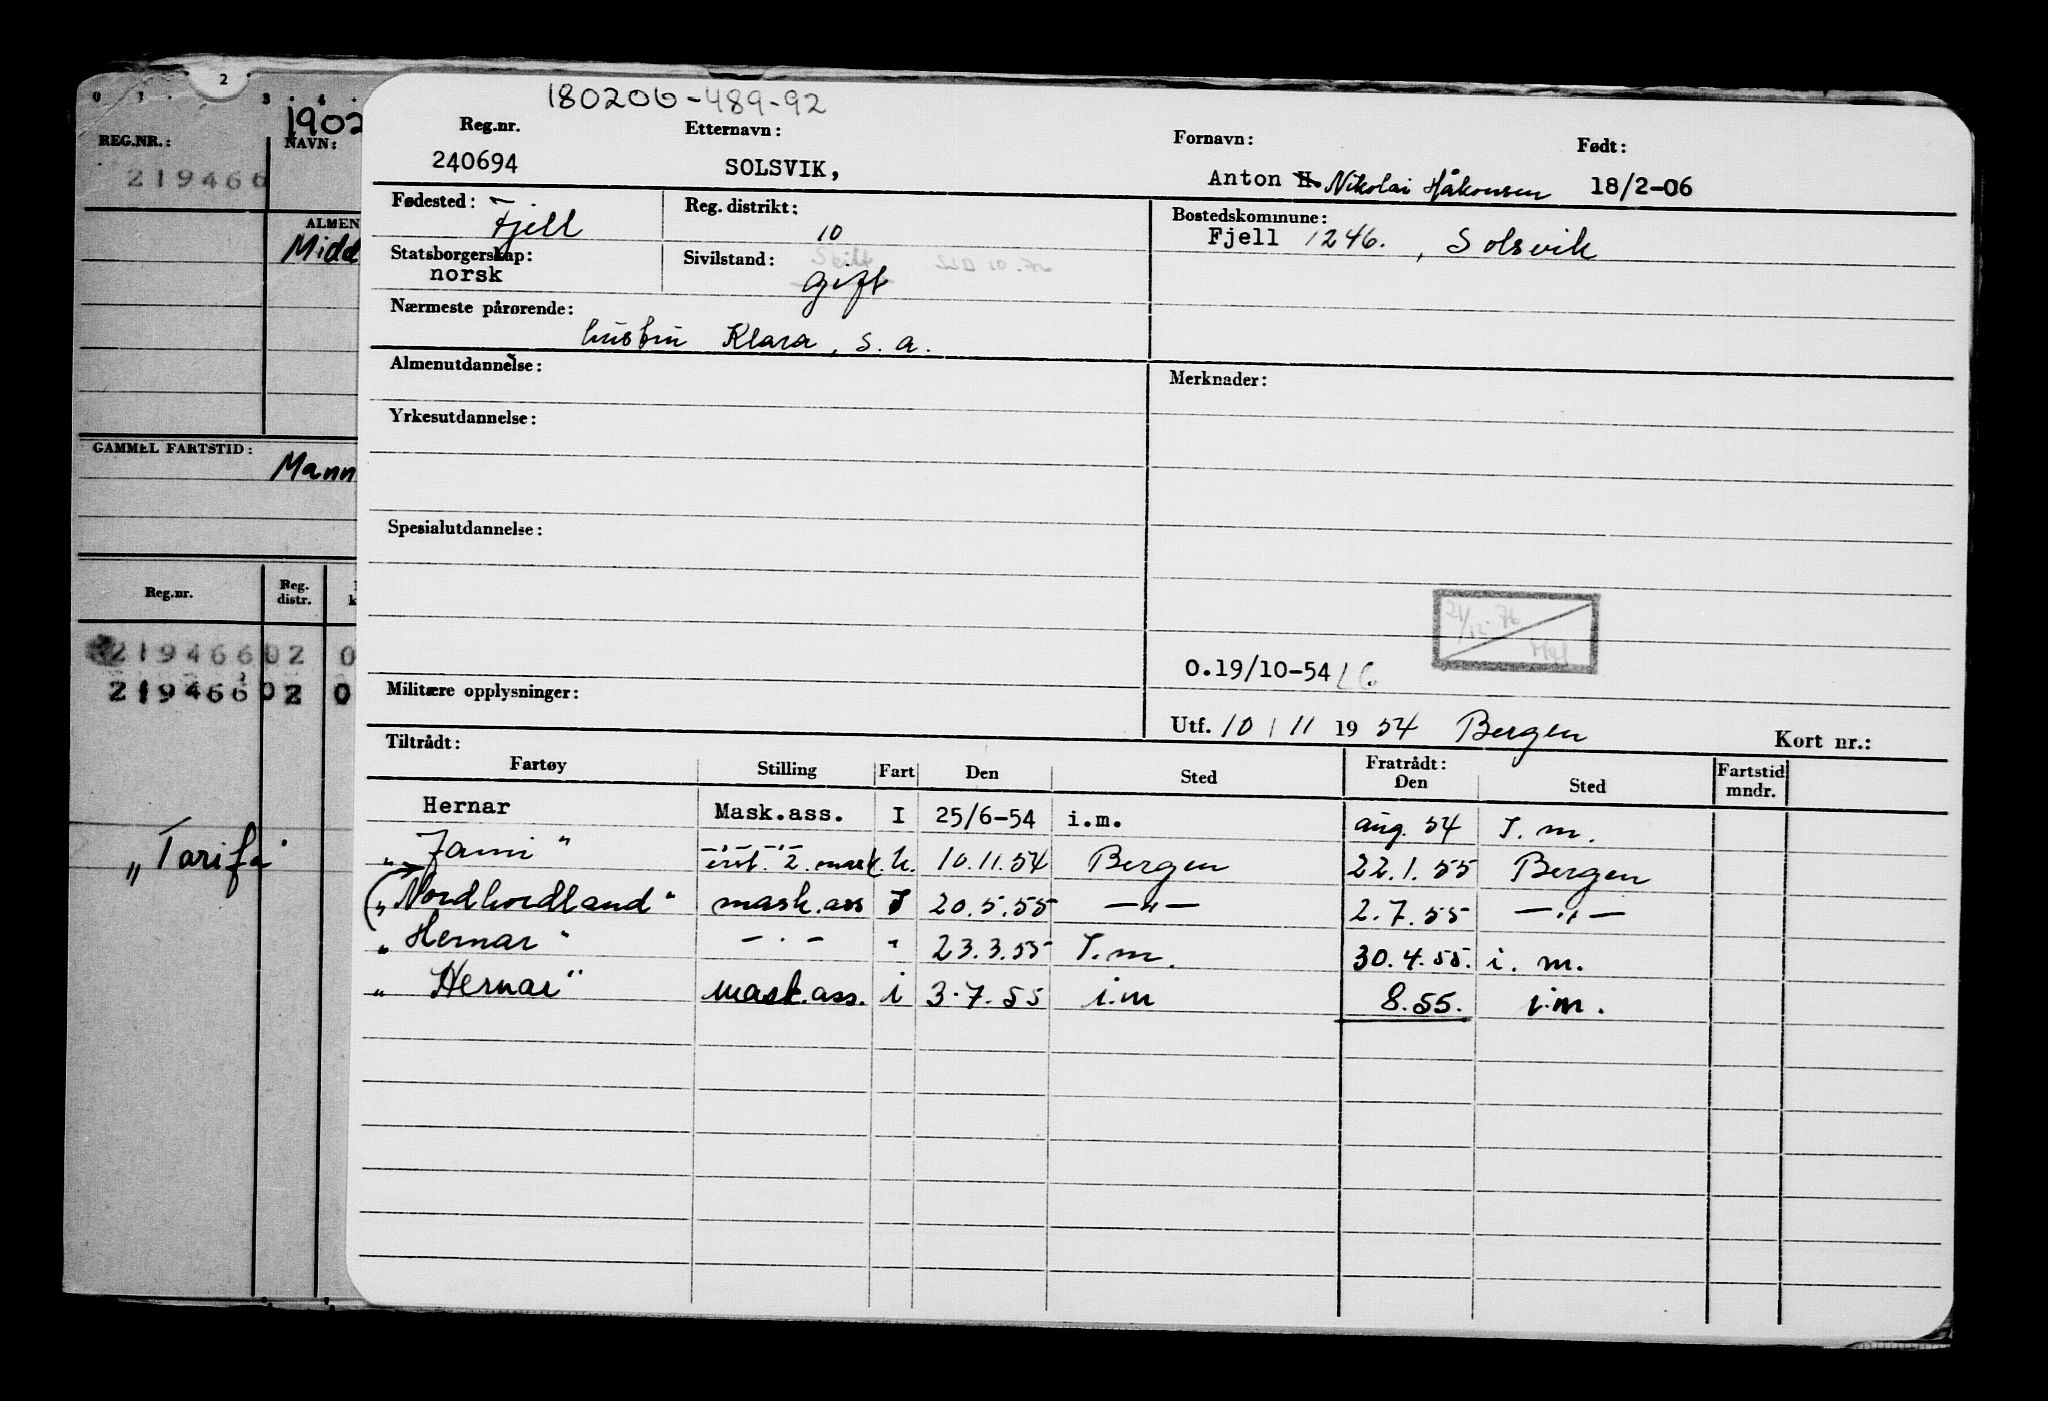 2
0 1 3 4
1902
REG.NR.:
NAVN:
219466
ALMEN
Midd
GAMMEL FARTSTID:
Mann
Reg.nr. Reg. distr.
219466 02 0
219466 02 0
„Tarifa"
180206-489-92
Reg.nr. Etternavn: Fornavn: Født:
240694 SOLSVIK, Anton H. Nikolai Håkonsen 18/2-06
Fødested: Fjell Reg. distrikt: 10 Bostedskommune: Fjell 1246., Solsvik
Statsborgerskap: norsk Sivilstand: Skilt gift
Nærmeste pårørende: hustru Klara, s. a.
Almenutdannelse: Merknader:
Yrkesutdannelse:
Spesialutdannelse:
21/12-76
O.19/10-54
Militære opplysninger:
Utf. 10 / 11 1954 Bergen Kort nr.:
Tiltrådt: Fratrådt:
Fartøy Stilling Fart Den Sted Den Sted Fartstid mndr.
Hernar Mask.ass. I 25/6-54 i.m. aug. 54 I.m.
„ " 2. mask. u. 10.11.54 Bergen 22.1.55 Bergen
„Nordhordland" mask.ass I 20.5.55 —"— 2.7.55 —"—
„Hernar" —"— " 23.3.55 I.m. 30.4.55. i.m.
„Hernar" mask.ass. i 3.7.55 i.m 8.55. i.m.